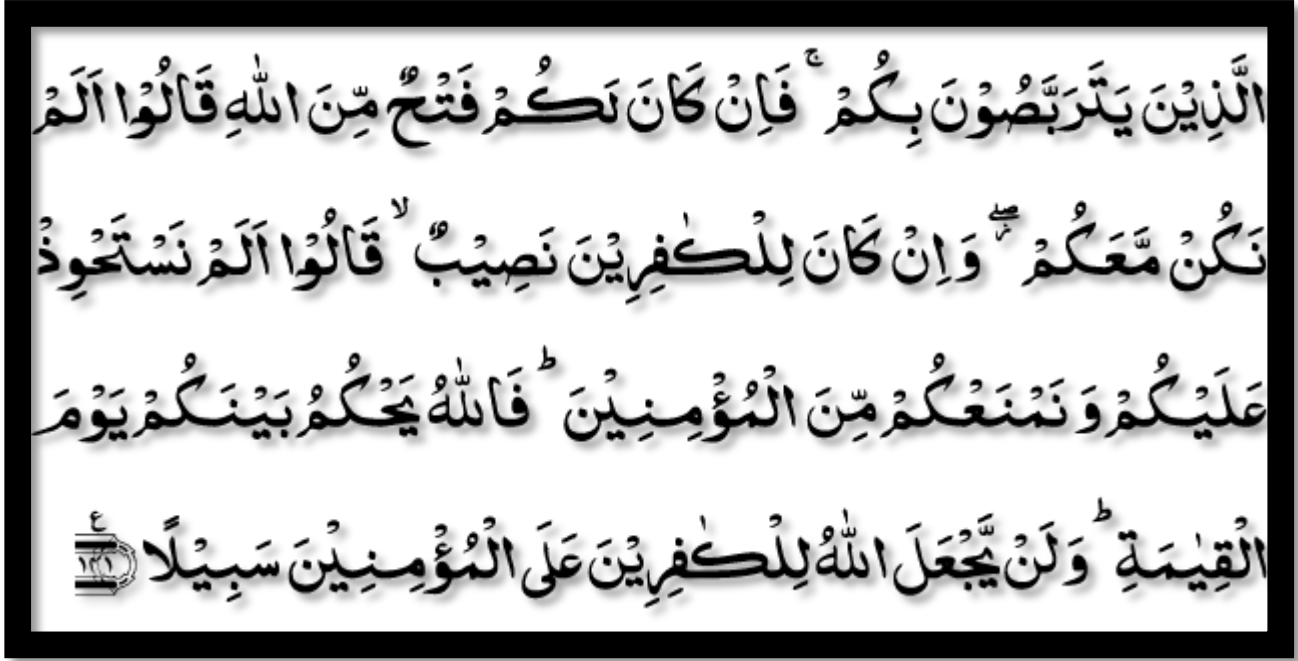 الَّذِيْنَ يَتَرَبَّصُوْنَ بِكُمْ ۚ فَاِنْ كَانَ لَكُمْ فَتْحٌ مِّنَ اللّٰهِ قَالُوْۤا اَلَمْ
نَكُنْ مَّعَكُمْ ۖؗ وَ اِنْ كَانَ لِلْكٰفِرِيْنَ نَصِيْبٌ ۙ قَالُوْۤا اَلَمْ نَسْتَحْوِذْ
عَلَيْكُمْ وَ نَمْنَعْكُمْ مِّنَ الْمُؤْمِنِيْنَ ؕ فَاللّٰهُ يَحْكُمُ بَيْنَكُمْ يَوْمَ
الْقِيٰمَةِ ؕ وَ لَنْ يَّجْعَلَ اللّٰهُ لِلْكٰفِرِيْنَ عَلَى الْمُؤْمِنِيْنَ سَبِيْلًا ۧ ۱۴۱